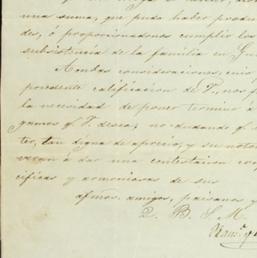 una suma, que pudo haber produ
des, ó proporcionadonos cumplir los
subsistencia de la familia en Gu
Ambas consideraciones, cuio
precedente calificacion de V., nos
la necesidad de poner termino á
gamos qe. V. desea; no dudando qe. s
ter, tan digna de aprecio, y su noto
veran á dar una contestacion con
cificas y armoniosas de sus
afmos. amigos, paisanos y
Q. B. S. M.